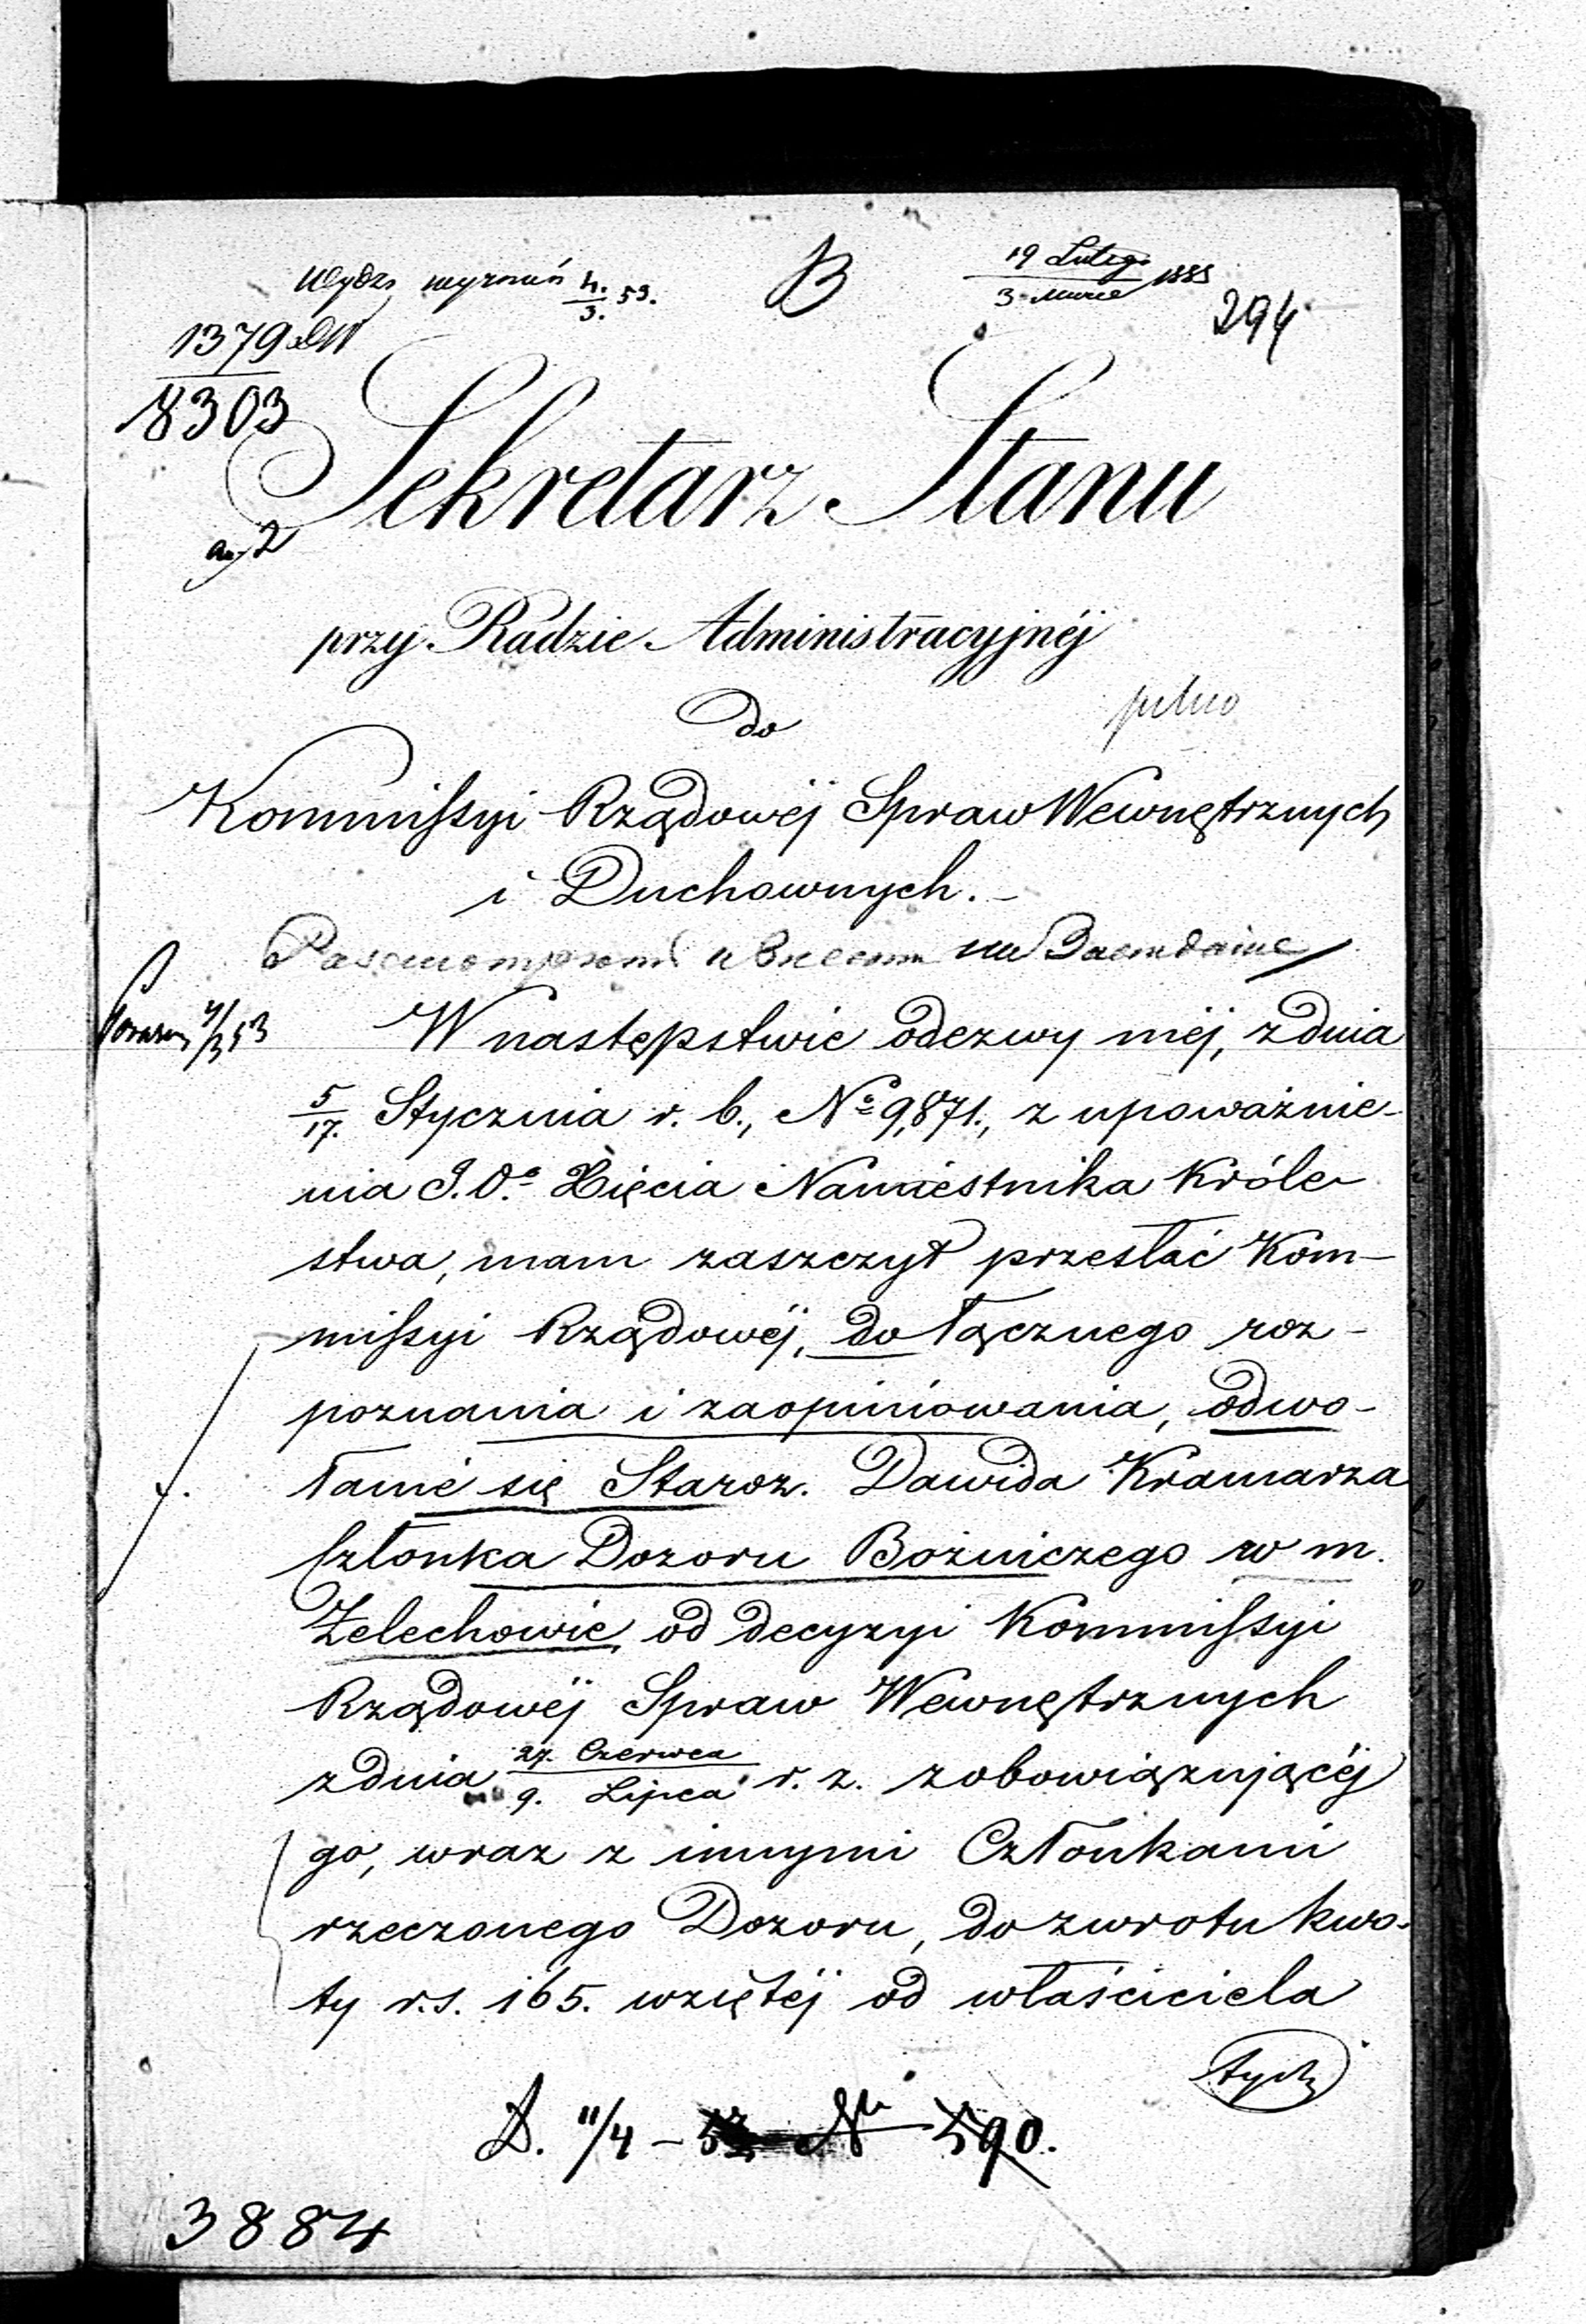 Wydz. wyznań 4/3. 53.
B
19 Lutego
3 Marca
294
1379
18303
Sekretarz Stanu
przy Radzie Administracyjnéj
do
pilno
Kommissyi Rządowéj Spraw Wewnętrznych
i Duchownych.
Разсмотреть и внести
W następstwie odezwy méj, z dnia
5/17. Stycznia r. b., Nº 9,871., z upoważnie-
nia J. O. Xięcia Namiestnika Króle-
stwa, mam zaszczyt przesłać Kom-
missyi Rządowéj, do łącznego roz-
poznania i zaopiniowania, odwo-
łanie się Staroz. Dawida Kramarza
Członka Dozoru Bożniczego w m.
Żelechowie, od decyzyi Kommissyi
Rządowéj Spraw Wewnętrznych
z dnia 27. Czerwca / 9. Lipca r. z. zobowiązującéj
go, wraz z innymi Członkami
rzeczonego Dozoru, do zwrotu kwo-
ty r.s. 165. wziętéj od właściciela
tych
D. 11/4 - № 590.
3884